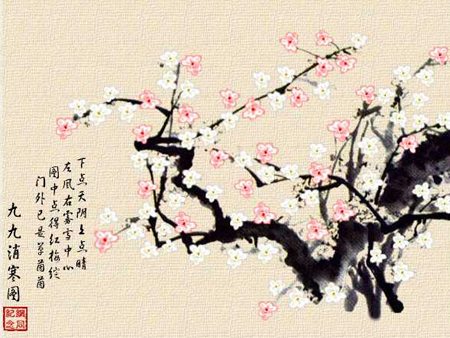 下点天阴上点晴
左风右雾雪中心
图中点得红梅绽
门外已是草茵茵
九九消寒图
紀念